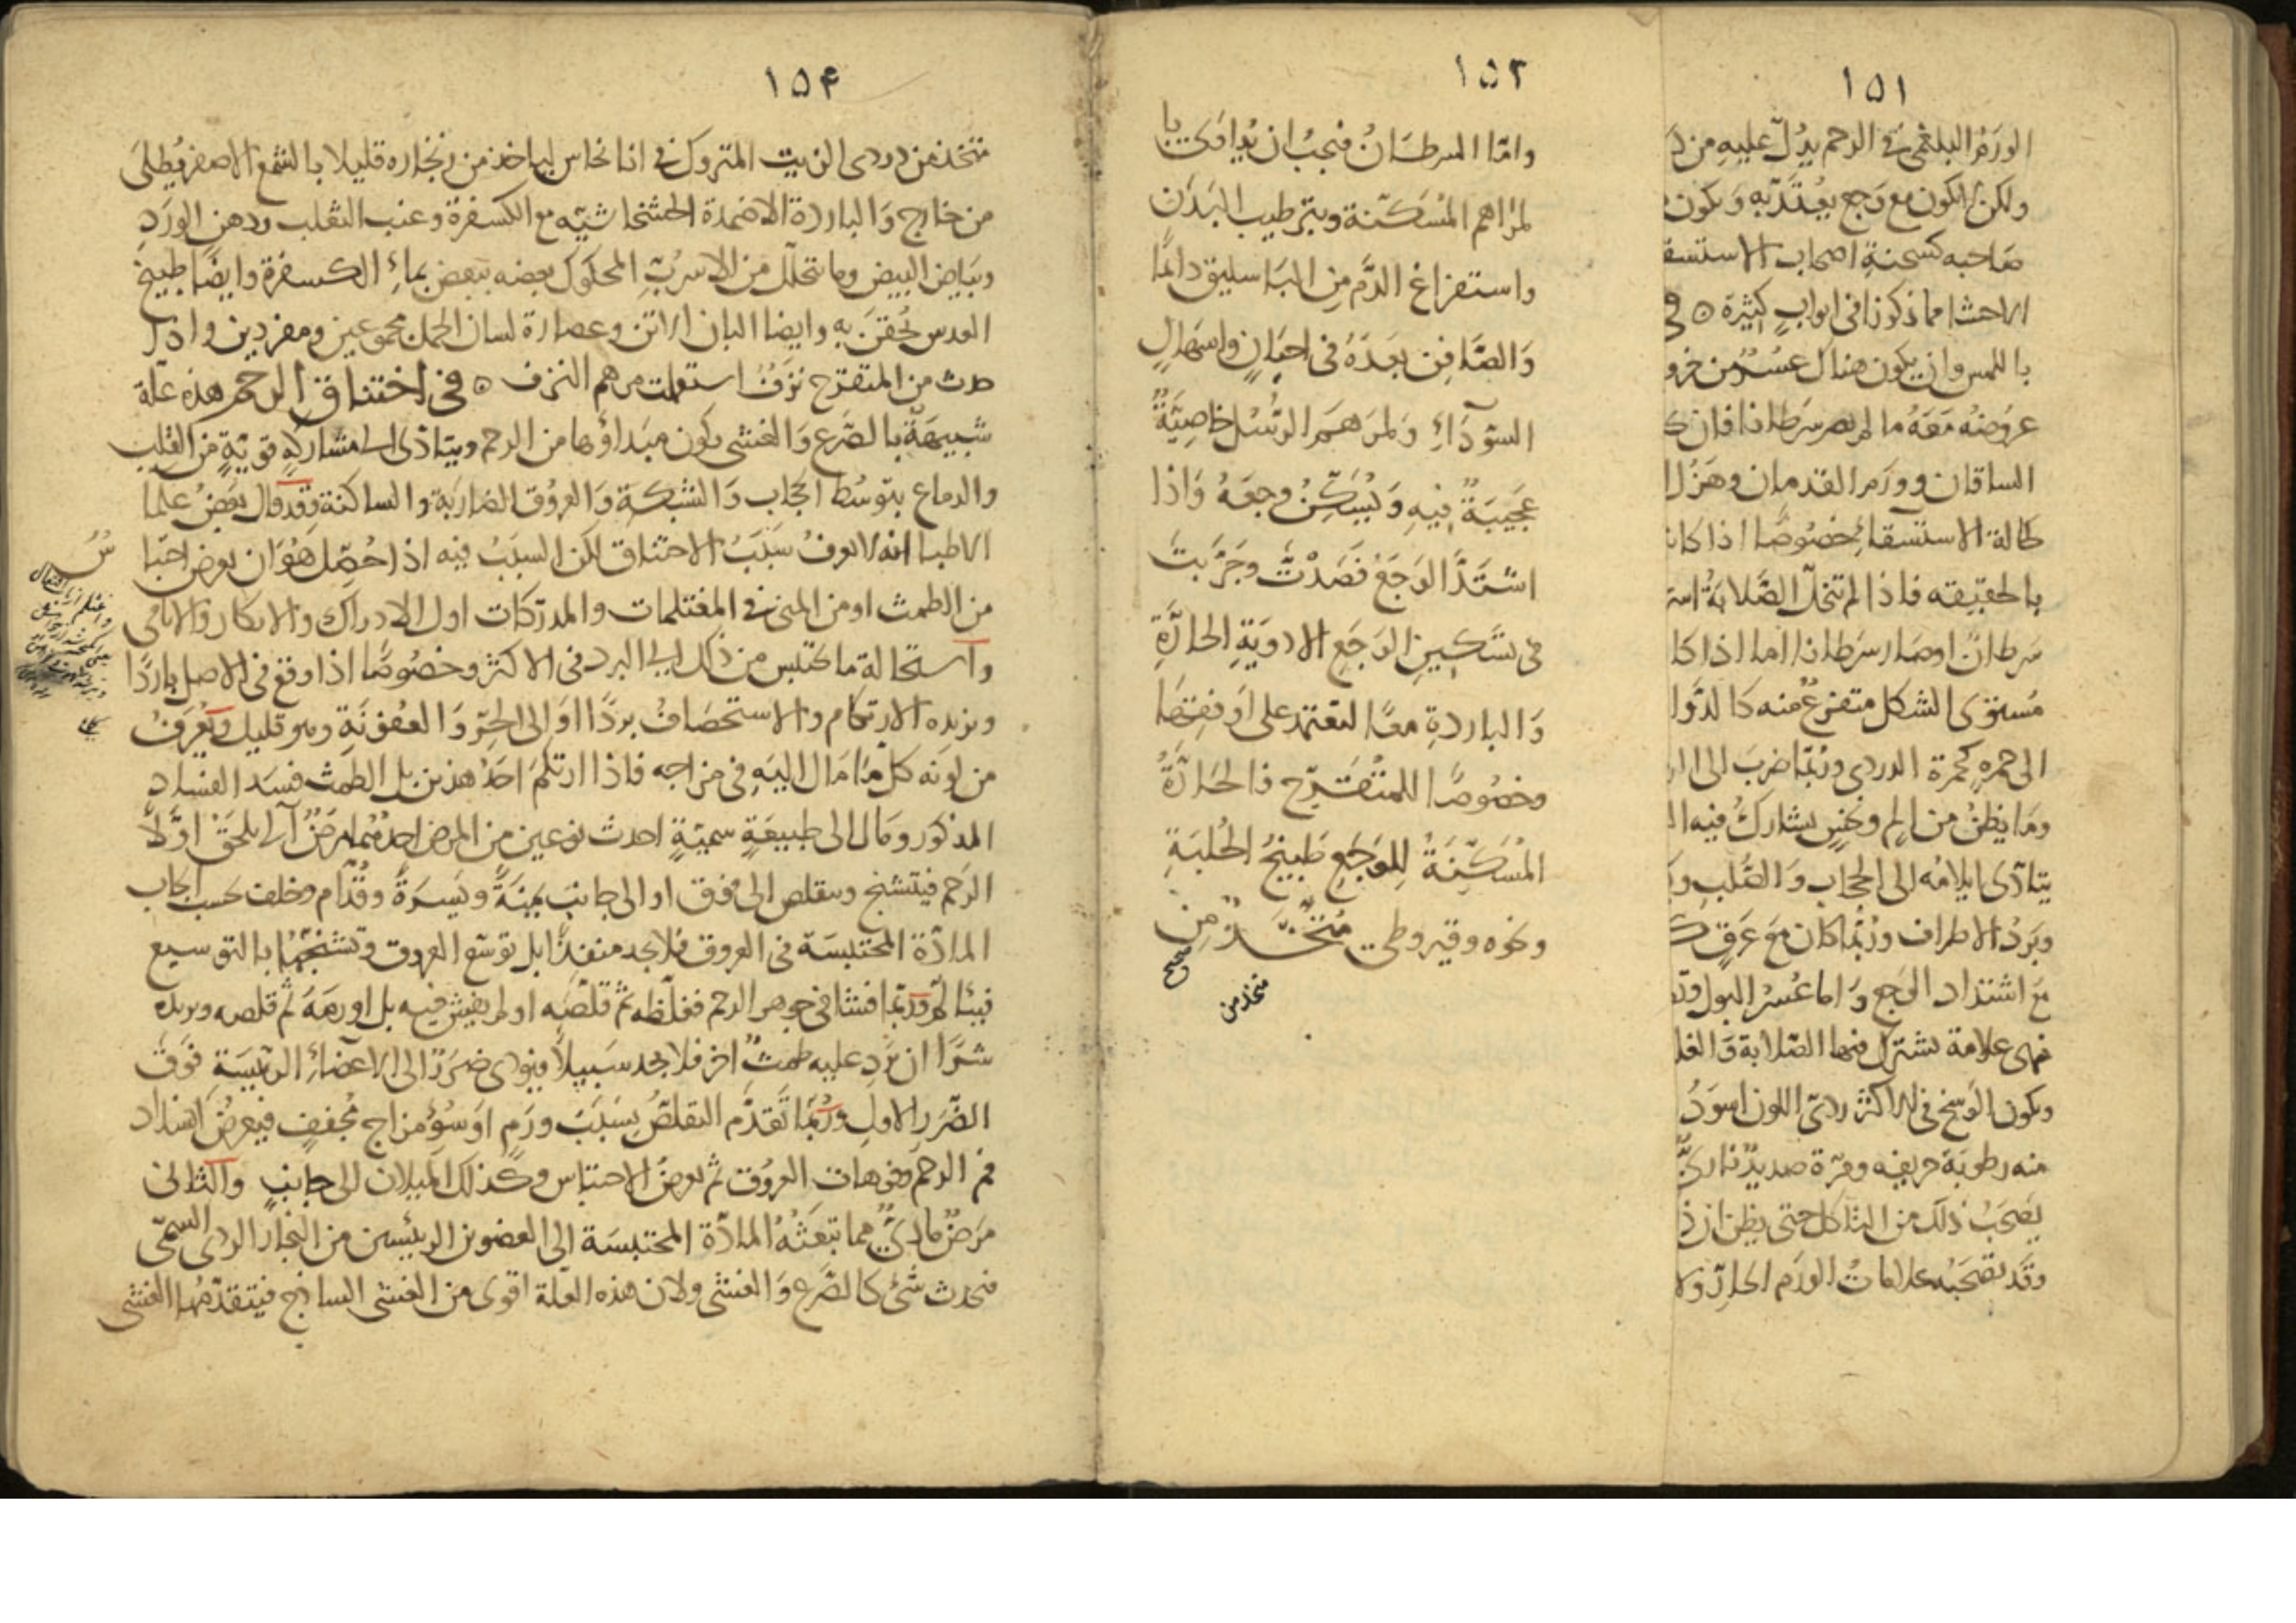 ١٥١
الورم البلغمى فى الرحم يدل عليه من
ولكن لا يكون مع وجع يعتد به ويكون
صاحبه كسحنة اصحاب الاستسقا
الاحشا مما ذكرنا فى ابواب كثيرة ٥ فى
باللمس وان يكون هناك عسر من خرو
عروضه معه ما لم يصر سرطانا فان
الساقان وورم القدمان وهزل ا
كحالة الاستسقاء خصوصا اذا كان
بالحقيقه فاذا لم تنحل الصلابة است
سرطانا او صار سرطانا اما اذا كا
مستوى الشكل متفرع منه كالدوا
الى حمرة كحمرة الدردى وربما ضرب الى ا
وما يظن من الم ونخس يشارك فيه ا
يتاذى ايلامه الى الحجاب والصلب و
وبرد الاطراف وربما كان مع عرق ك
مع اشتداد الوجع واما عسر البول
فهى علامة تشترك فيها الصلابة والغل
ويكون الوسخ فى الاكثر ردى اللون اسود
منه رطوبة حريفه ومرة صديد
يصحب ذلك من التاكل حتى يظن ان
وقد تصحبه علامات الورم الحار ولا
١٥٢
واما السرطان فيجب ان يداوى با
لمراهم المسكنة وبترطيب البدن
واستفراغ الدم من الباسليق دائما
والصافن بعده فى احيان واسهال
السوداء ولمرهم الرسل خاصية
عجيبة فيه ويسكن وجعه واذا
اشتد الوجع فصدت وجربت
فى تسكين الوجع الادوية الحارة
والباردة معا لتعتمد على اوفقها
وخصوصا للمتقرح فالحارة
المسكنة للوجع طبيخ الحلبة
ونحوه وقيروطى متخذ من
صح
متخذ من
١٥٤
متخذ من دردى الزيت المتروك فى انا نحاس لياخذ من زنجاره قليلا بالشمع الاصفر يطلى
من خارج والباردة الاضمدة الخشخاشيه مع الكسفرة وعنب الثعلب ودهن الورد
وبياض البيض وما تحلل من الاسرب المحكوك بعضه ببعض بماء الكسفرة وايضا طبيخ
العدس يحقن به وايضا البان الاتن وعصارة لسان الحمل مجموعين ومفردين واذا
حدث من المتقرح نزف استعملت مرهم النزف ٥ فى اختناق الرحم هذه علة
شبيهة بالصرع والغشى يكون مبداؤها من الرحم ويتاذى الى مشاركة قوية من القلب
والدماع بتوسط الحجاب والشبكة والعروق الضاربة والساكنة وقد قال بعض علما
الاطبا انه لا يعرف سبب الاختناق لكن السبب فيه اذا حصل هو ان يعرض احتبا س
من الطمث او من المنى فى المغتلمات والمدركات اول الادراك والابكار والايامى
واستحالة ما يحتبس من ذلك الى البرد فى الاكثر وخصوصا اذا وقع فى الاصل باردا
ويزيده الارتكام والاستحصاف بردا او الى الحر والعفونة وهو قليل ويعرف
من لونه كل ما مال اليه فى مزاجه فاذا ارتكم احد هذين بل الطمث فسد الفساد
المذكور ومال الى طبيعة سمية احدث نوعين من المرض احدهما مرض آلى يلحق اولا
الرحم فيتشنج ويتقلص الى فوق او الى جانب يمنة ويسرة وقدام وخلف بحسب ايجاب
المادة المحتبسة فى العروق فلا يجد منفذا بل توسع العروق وتشنجها بالتوسيع
وربما فشا فى جوهر الرحم فغلظه ثم قلصه او لم يفش فيه بل اورمه ثم قلصه ويزيده
شرا ان يرد عليه طمث اخر فلا يجد سبيلا فيؤدى ضررا الى الاعضاء الرئيسة فوق
الضرر الاول وربما تقدم التقلص بسبب ورم او سوء مزاج مجفف فيعرض انسداد
فم الرحم وفوهات العروق ثم يعرض الاحتباس وكذلك الميلان الى جانب والثانى
مرض مادى مما تبعثه المادة المحتبسة الى العضوين الرئيسين من البخار الردى السمى
فيحدث شئ كالصرع والغشى ولان هذه العلة اقوى من الغشى الساذج فيتقدمها الغشى